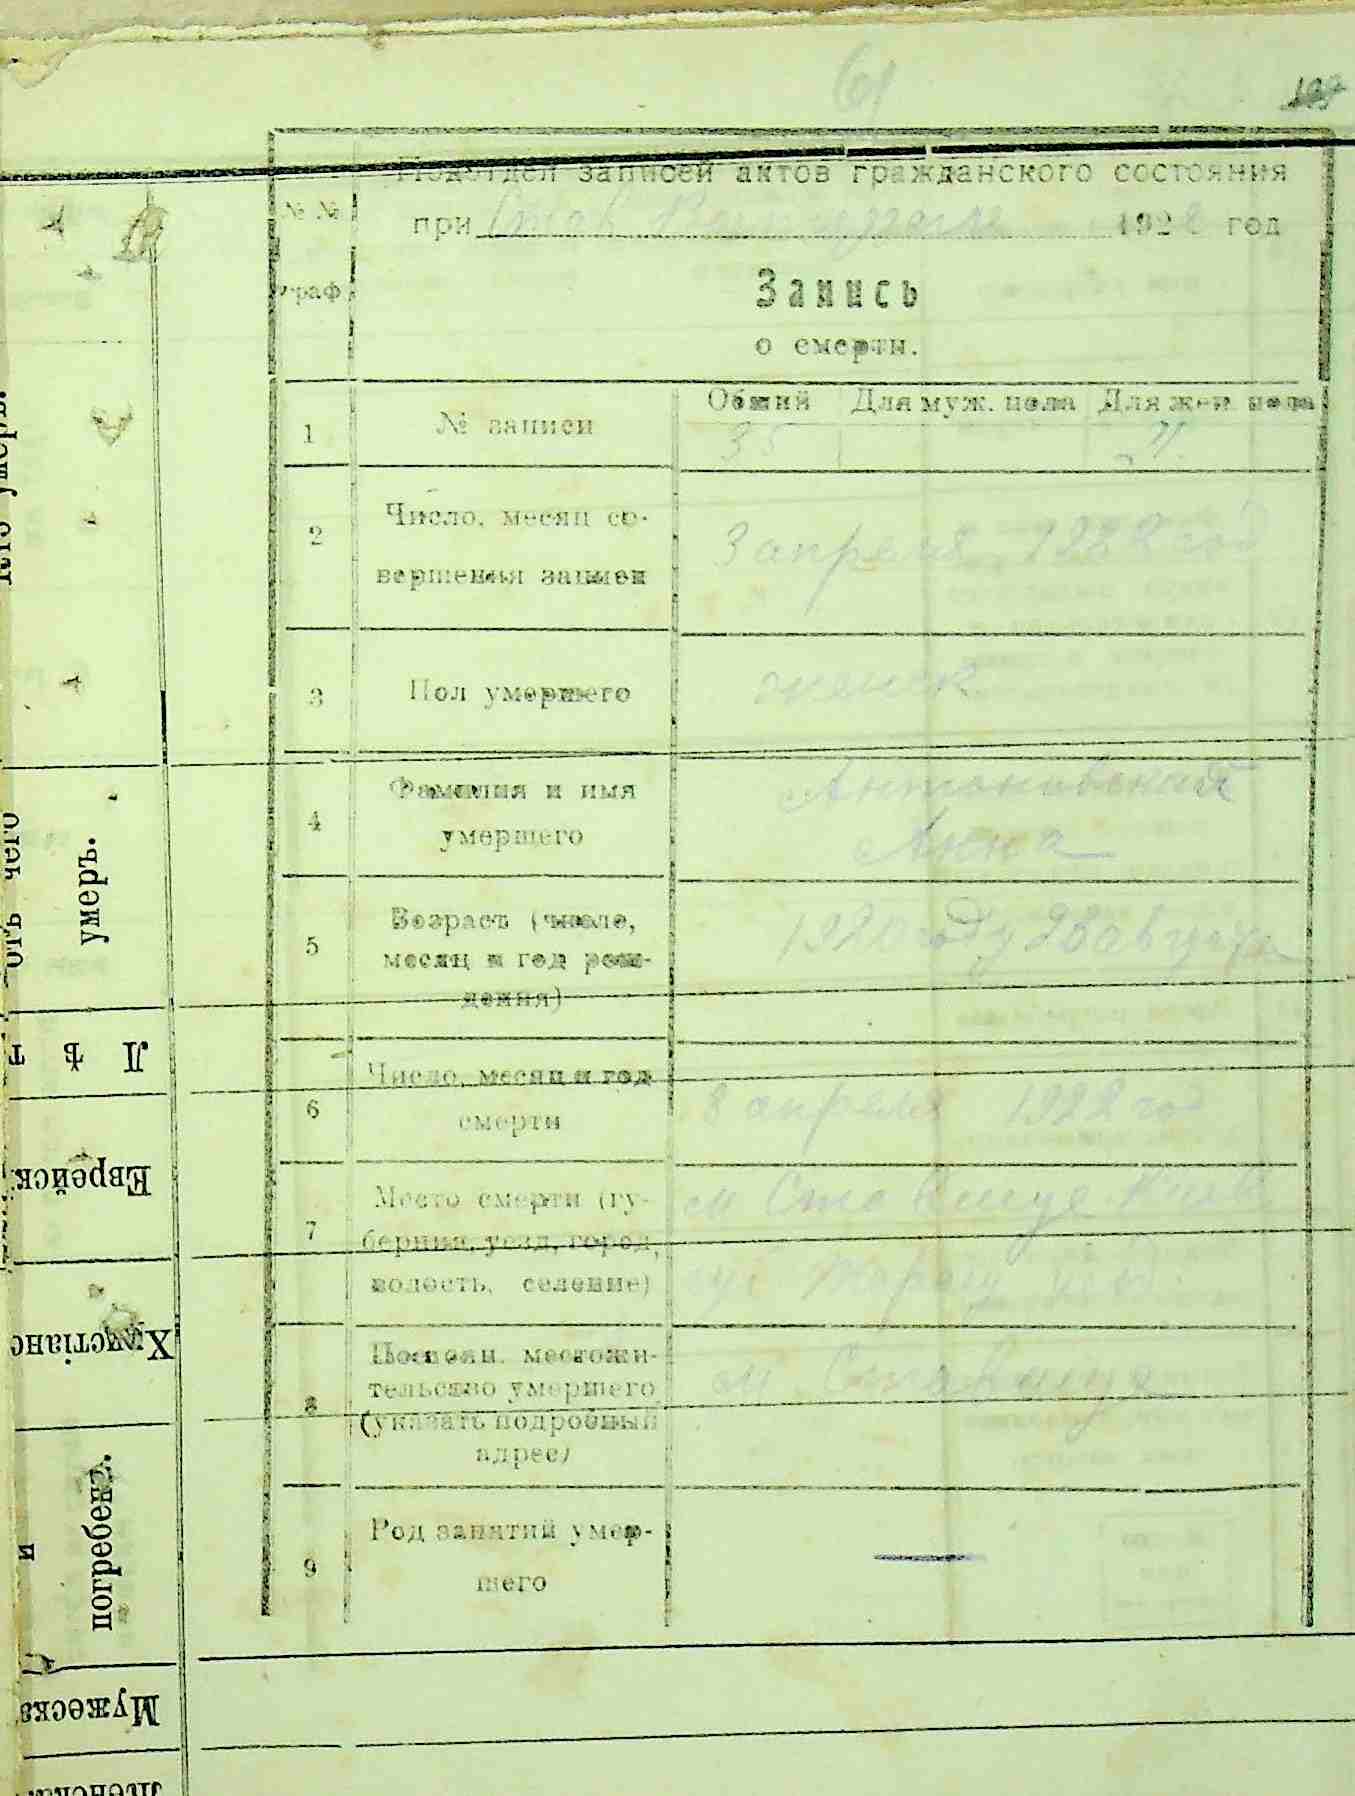 61
Подотдел записей актов гражданского состояния
при Став 1922 год
№ №
граф
Запись
о смерти.
1
№ записи
Общий
Для муж. пола
Для жен. пола
35
2
Число, месяц со-
вершенья записи
3 апреля 1922 год
3
Пол умершего
женск
4
Фамилия и имя
умершего
Антоновский
Анна
5
Возраст (число,
месяц и год рож-
дения)
1920 году 28 августа
6
Число, месяц и год
смерти
3 апреля 1922 год
7
Место смерти (гу-
берния, уезд, город,
волость, селение)
м Ставище Киев
губ Таращ уез.
8
Постоян. местожи-
тельство умершего
(указать подробный
адрес)
м. Ставище
9
Род занятий умер-
шего
—
Кто умеръ.
отъ чего
умеръ.
Л ѣ т
Еврейск
Христіанс
и
погребенъ.
Мужеска
Женска